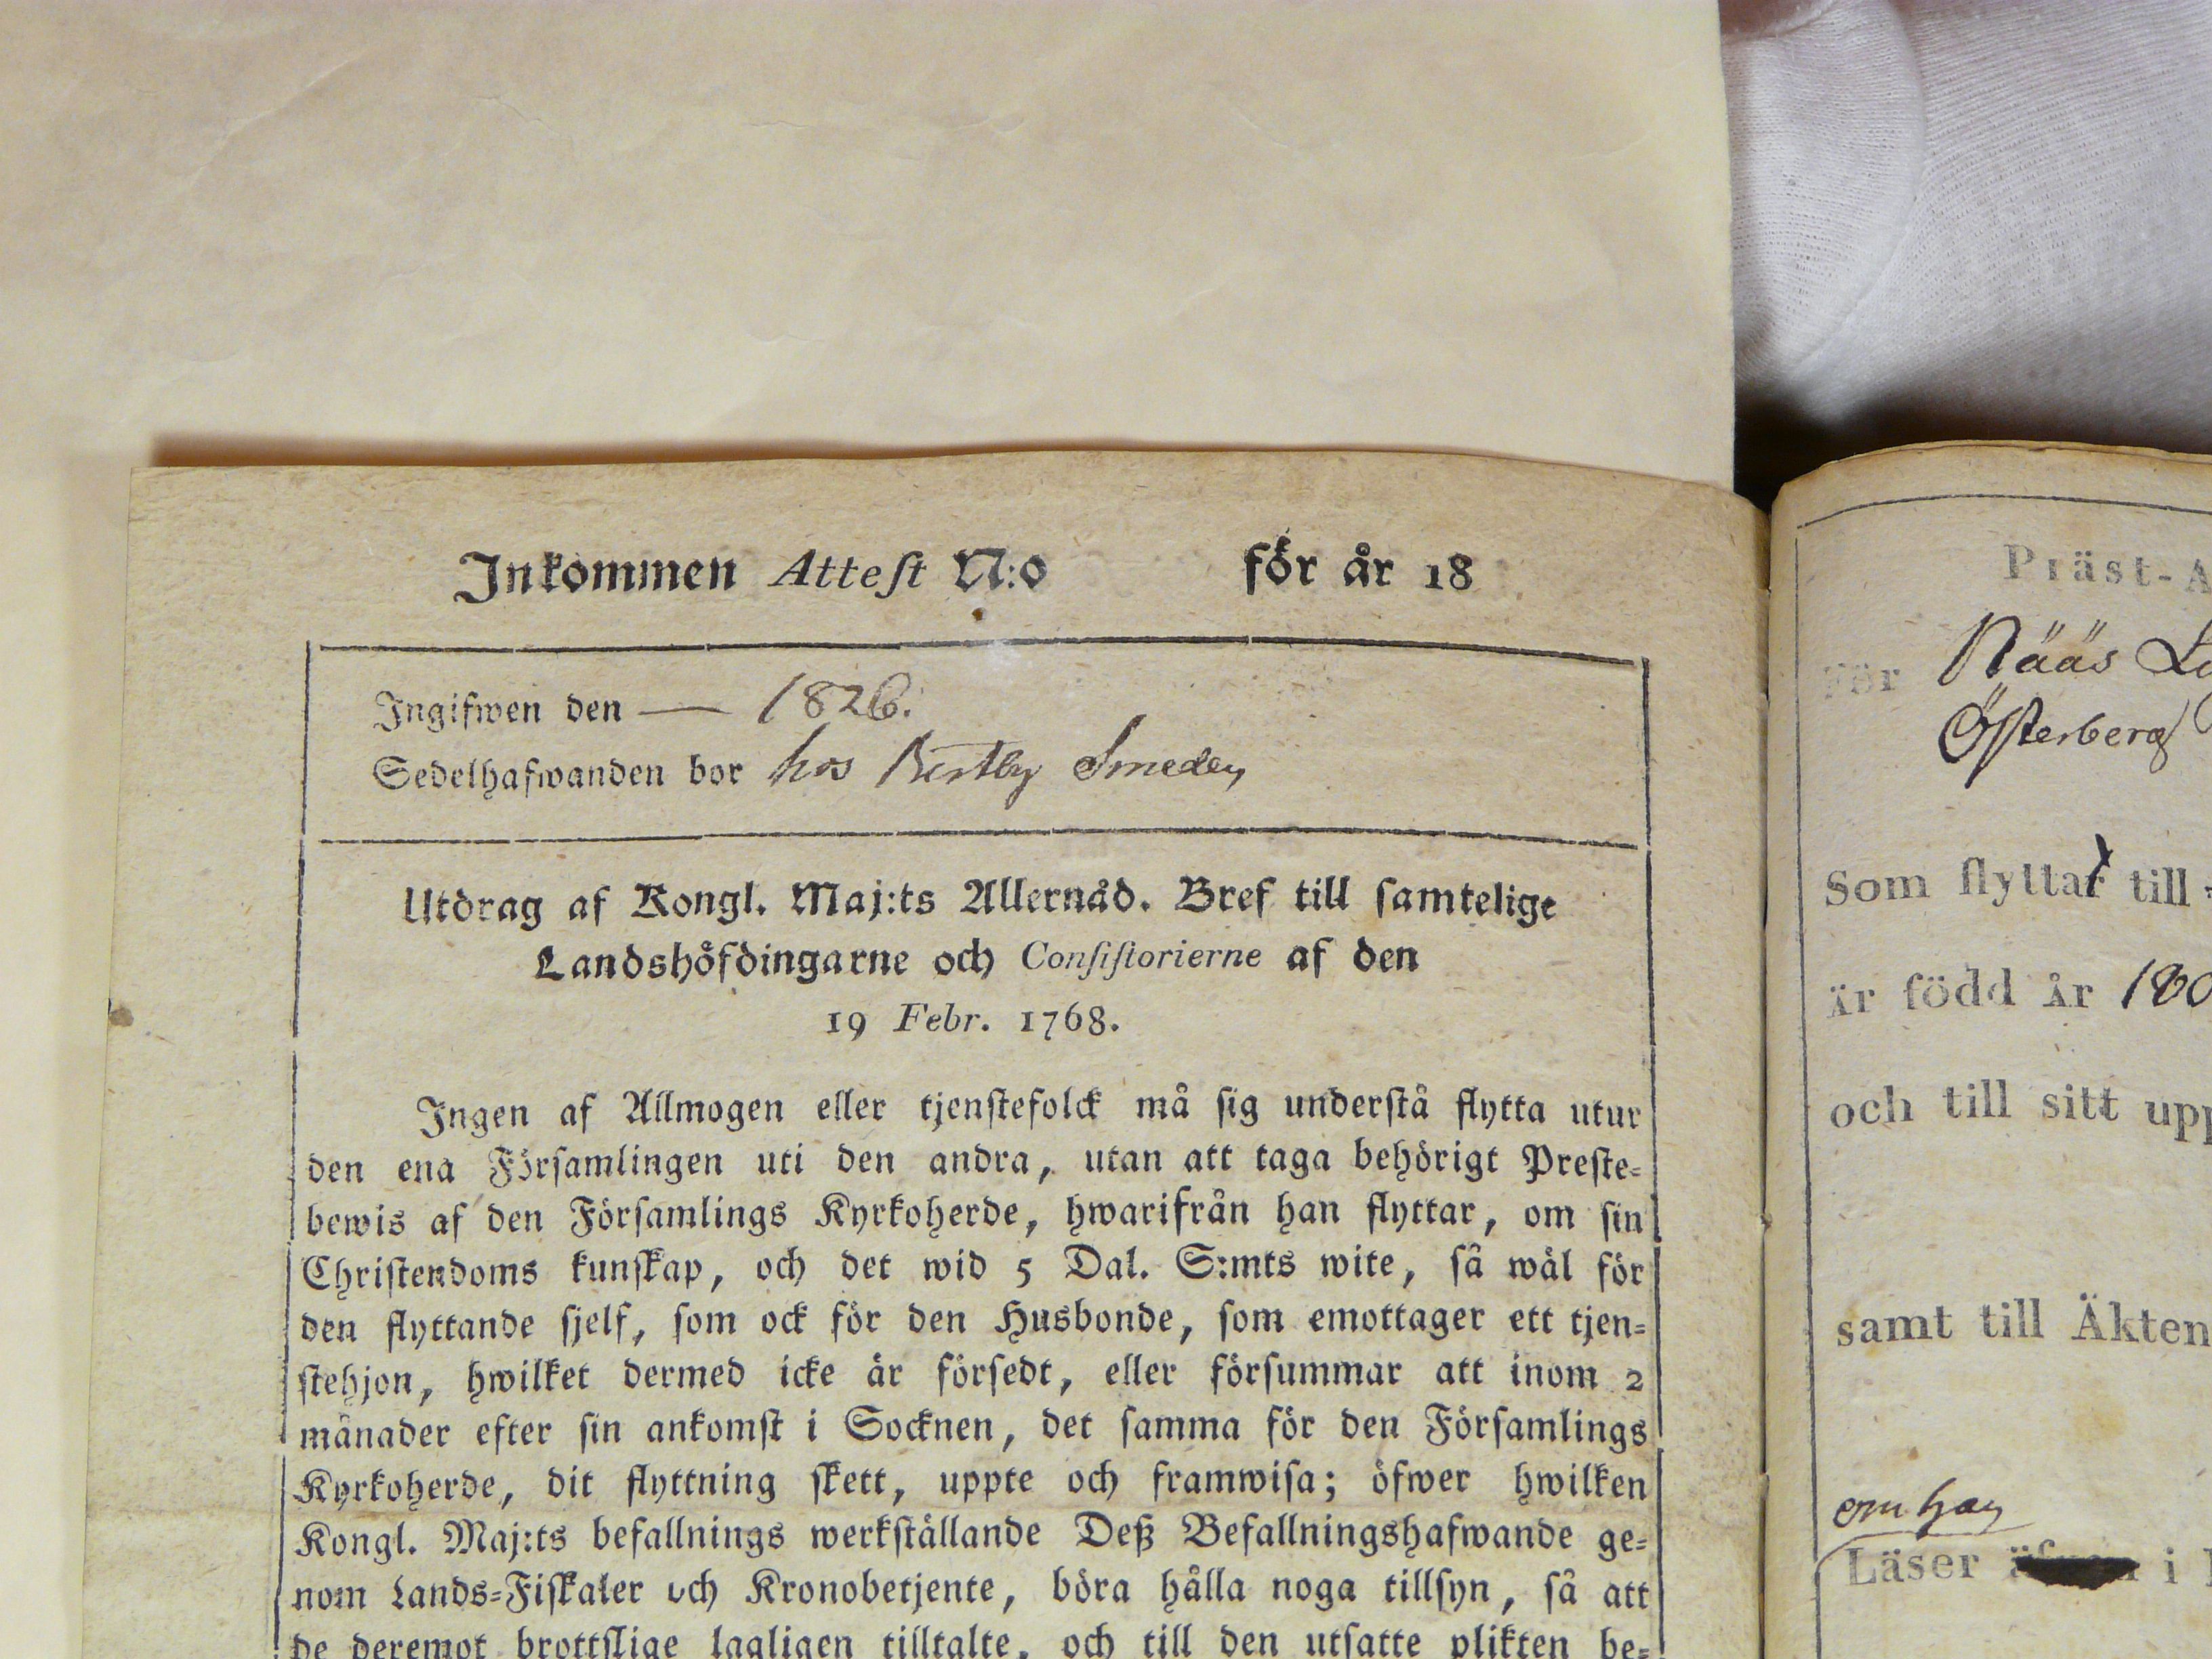 Inkommen Attest N:o för år 18
Ingifwen den — 1826.
Sedelhafwanden bor hos Smeden
Utdrag af Kongl. Maj:ts Allernåd. Bref till samtelige
Landshöfdingarne och Consistorierne af den
19 Febr. 1768.
Ingen af Allmogen eller tjenstefolck må sig understå flytta utur
den ena Församlingen uti den andra, utan att taga behörigt Preste-
bewis af den Församlings Kyrkoherde, hwarifrån han flyttar, om sin
Christendoms kunskap, och det wid 5 Dal. S:mts wite, så wäl för
den flyttande sjelf, som ock för den Husbonde, som emottager ett tjen-
stehjon, hwilket dermed icke är försedt, eller försummar att inom 2
månader efter sin ankomst i Socknen, det samma för den Församlings
Kyrkoherde, dit flyttning skett, uppte och framwisa; öfwer hwilken
Kongl. Maj:ts befallnings werkställande Deß Befallningshafwande ge-
nom Lands-Fiskaler och Kronobetjente, böra hålla noga tillsyn, så att
de deremot brottslige lagligen tilltalte, och till den utsatte plikten be-
Präst-A
För Nääs
Österberg
Som flyttat till
är född år 180
och till sitt upp
samt till Äkten
om han
Läser i